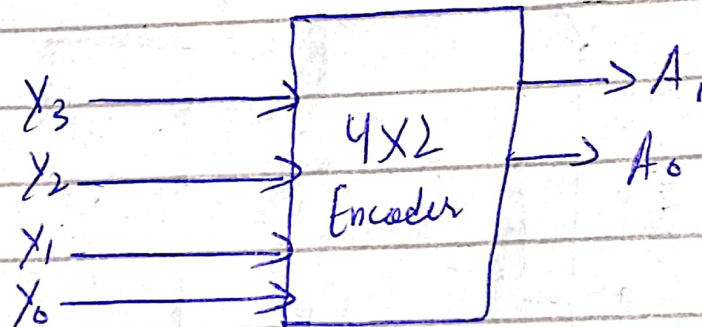 Y3
Y2
Y1
Y0
4X2
Encoder
A1
A0